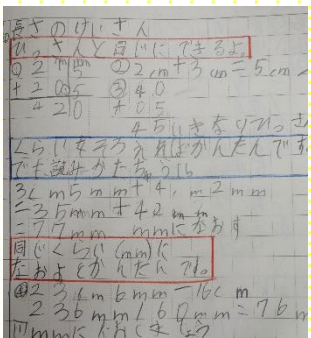 長さのけいさん
ひっさんと同じにできるよ。
①215 ②2cm+3cm=5cm
+205 ③40
420 +05
45いきなりひっさ
くらいをそろえればかんたんです
でも読みかたちがう
3cm5mm+4cm2mm
=35mm+42mm
=77mm mmになおす
同じくらい(mm)に
なおすとかんたんです。
④236m6mm-16cm
236mm160mm=76m
mmに